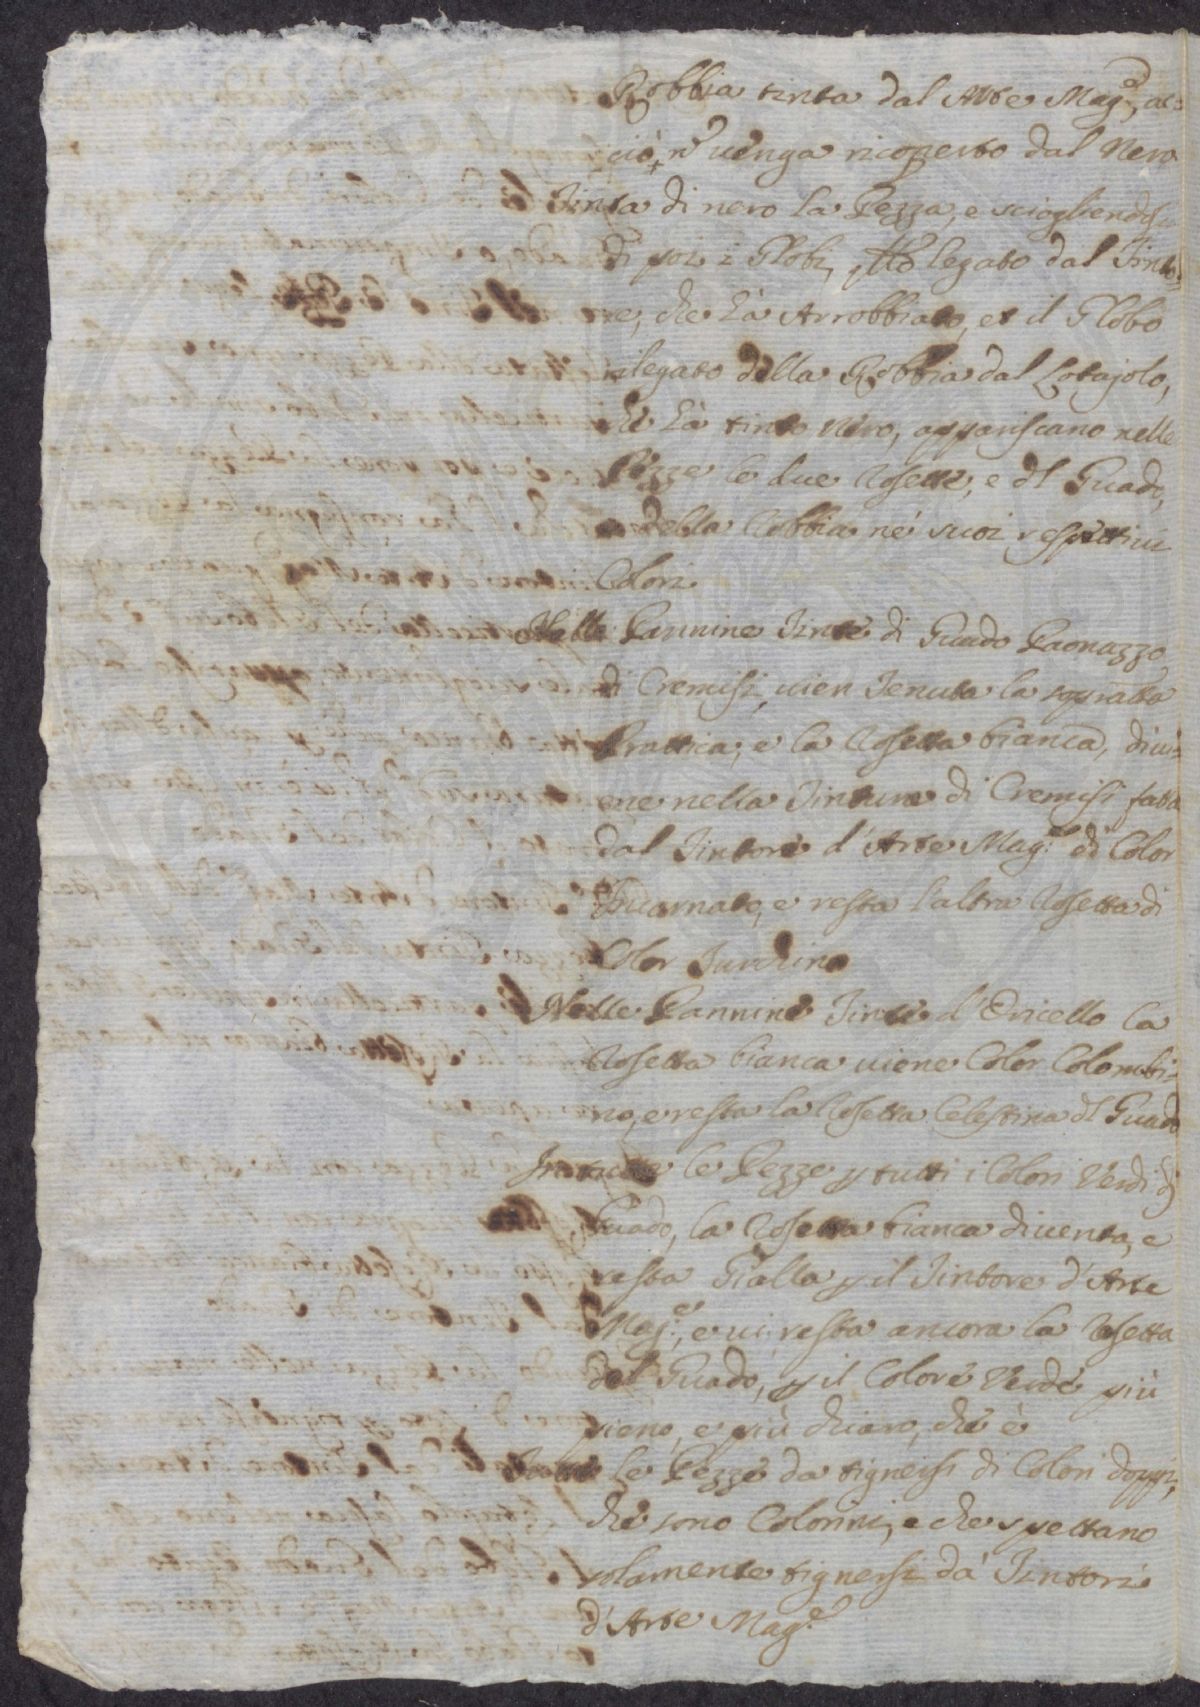 Robbia tinta dal Arte Mag.e, ac=
ciò nō uenga ricoperto dal Nero
Tinta di nero la Pezza, e sciogliendosi
di poi i Globi, legato dal Tinto=
re, che hà Arrobbiato, et il Globo
rilegato della Robbia dal Lotajolo,
che hà tinto Nero, appariscano nelle
Pezze le due Rosette, e dl Guado,
e della Robbia né suoi respettiui
Colori.
Nelle Pannine Tinte di Guado Paonazzo
di Cremisi, uien Tenuta la sopratta
Prattica, e la Rosetta bianca, diui=
ene nella Tintura di Cremisi fatta
dal Tintore d'Arte Mag.e di Color
Incarnato, e resta l'altra Rosetta di
Color Turchino
Nelle Pannine Tinte d'Oricello la
Rosetta bianca uiene Color Colombi=
no, e resta la Rosetta Celestina dl Guado
In tutte le Pezze p tutti i Colori Verdi di
Guado, la Rosetta bianca diuenta, e
resta Gialla p il Tintore d'Arte
Mag.e, e ui resta ancora la Rosetta
del Guado, p il Colore Verde più
pieno, e più chiaro, che è
Tutte le Pezze da tignersi di Colori doppi,
che sono Colorini, e che spettano
solamente tignersi da' Tintori
d'Arte Mag.e